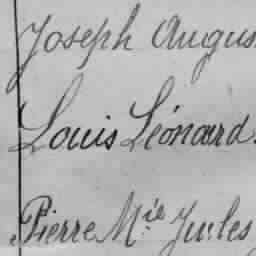 Joseph Augus
Louis Léonard.
Pierre M.ie Jules